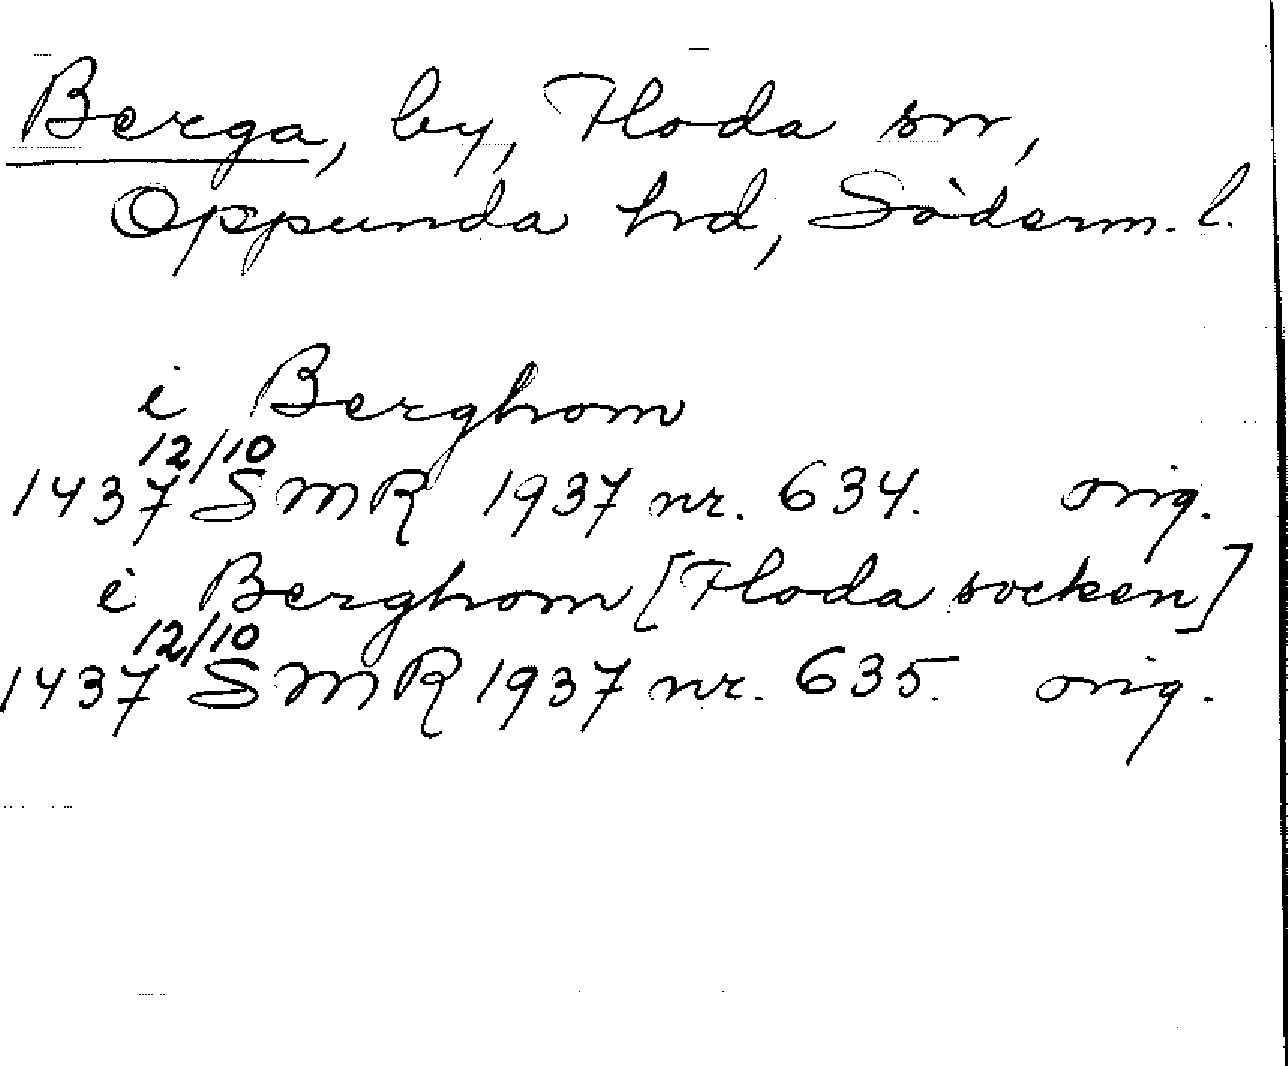 Berga, by, Floda sn,
Oppunda hd, Söderm. l.
i Berghom
12/10
1437 SMR 1937 nr. 634. orig.
i Berghom [Floda socken]
12/10
1437 SMR 1937 nr. 635. orig.